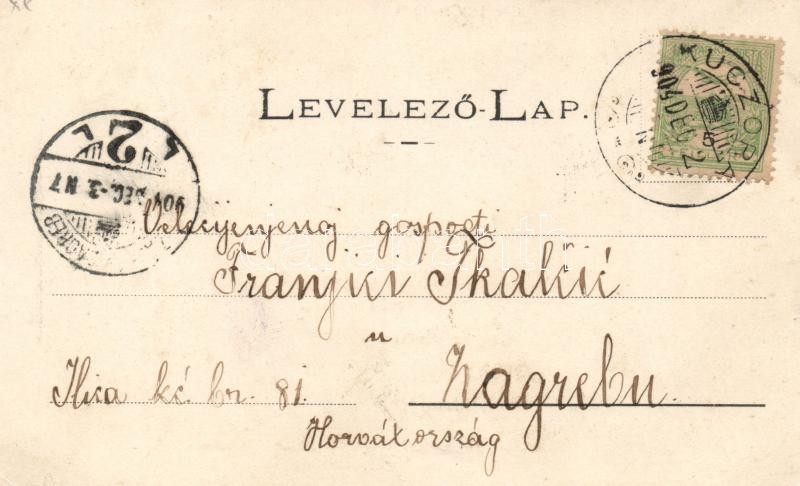 LEVELEZŐ-LAP.
KUCZORA
904 DEC. 2
904 DEC.-3. N7
ZAGREB
Velecijenjenoj gospodi
Franjki Tkalčić
u
Ilica kć. br. 81. Zagrebu.
Horvátország